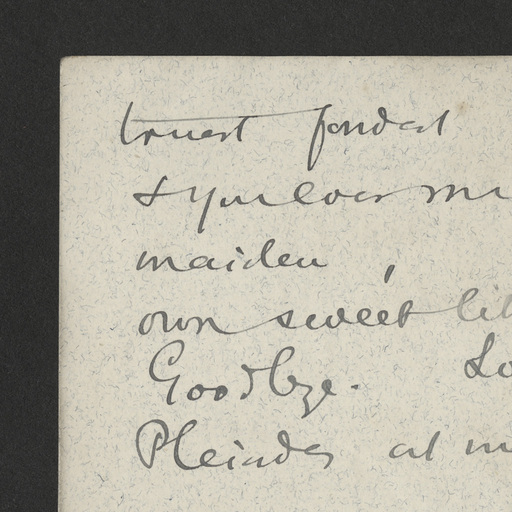 truest fondest
& your lover m
maiden,
own sweet lit
Goodbye. Lo
Pleiades at m